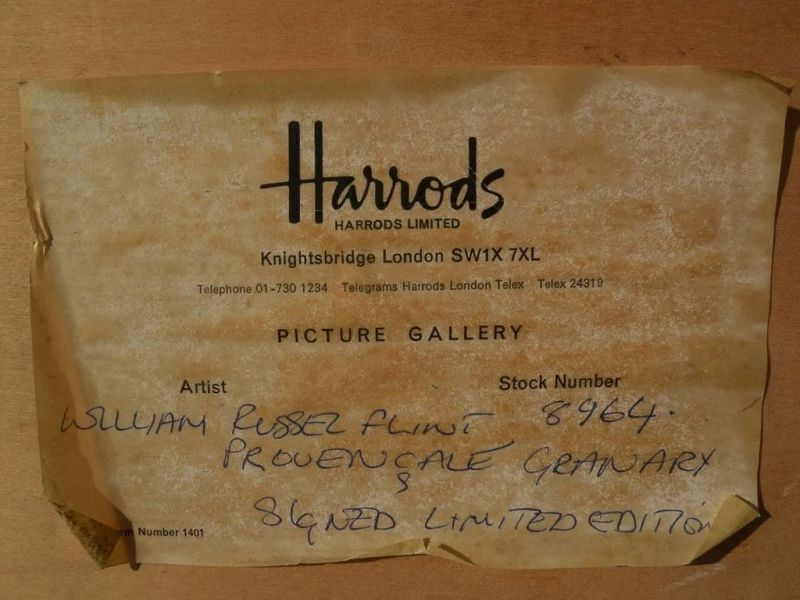 Harrods
HARRODS LIMITED
Knightsbridge London SW1X 7XL
Telephone 01-730 1234 Telegrams Harrods London Telex Telex 24319
PICTURE GALLERY
Artist Stock Number
WILLIAM RUSSEL FLINT 8964.
PROVENÇALE GRANARY
SIGNED LIMITED EDITION
Number 1401